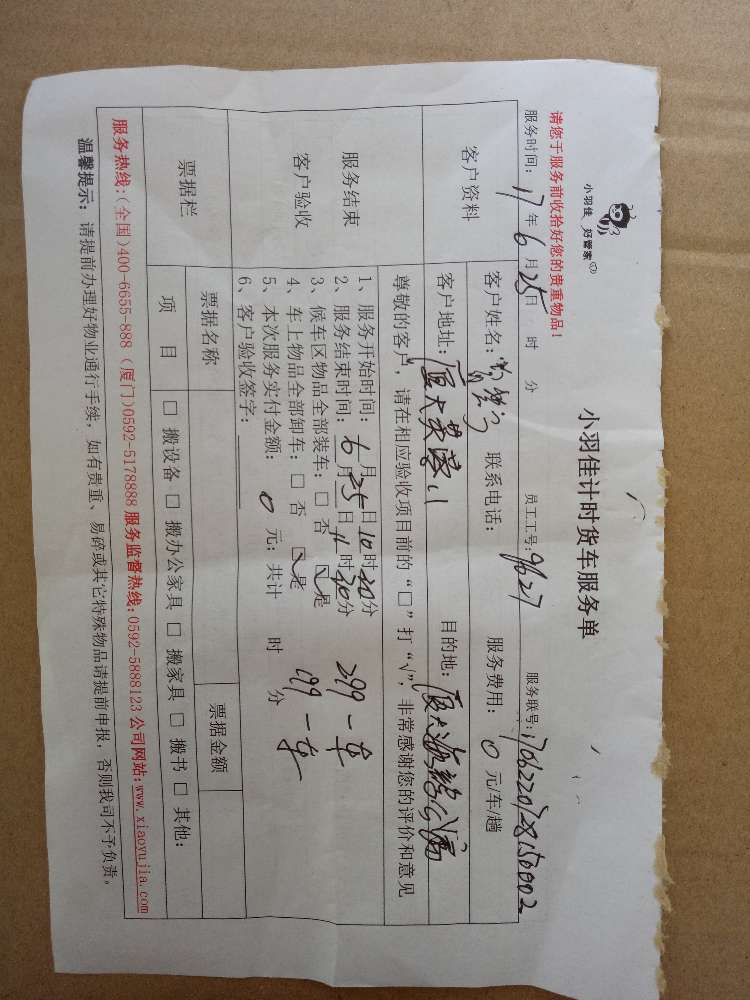 小羽佳 好管家
小羽佳计时货车服务单
请您于服务前收拾好您的贵重物品!
服务时间: 17年6月25日 时 分 员工工号: 9627 服务联号: 170622012815
客户资料
客户姓名: 联系电话: 服务费用: 0 元/车/趟
客户地址: 厦大芙蓉11 目的地: 厦大海韵
尊敬的客户, 请在相应验收项目前的“□”打“√”, 非常感谢您的评价和意见
服务结束
客户验收
1、服务开始时间: 6月25日10时20分
2、服务结束时间: 6月25日11时30分 299一车
3、候车区物品全部装车: □ 否 ☑ 是
4、车上物品全部卸车: □ 否 ☑ 是 199一车
5、本次服务实付金额: 0 元; 共计 时 分
6、客户验收签字:
票据栏
票据名称 票据金额
项 目 □ 搬设备 □ 搬办公家具 □ 搬家具 □ 搬书 □ 其他:
服务热线:(全国)400-6655-888 (厦门)0592-5178888 服务监督热线:0592-5888123 公司网站:www.xiaoyujia.com
温馨提示: 请提前办理好物业通行手续, 如有贵重、易碎或其它特殊物品请提前申报, 否则我司不予负责。